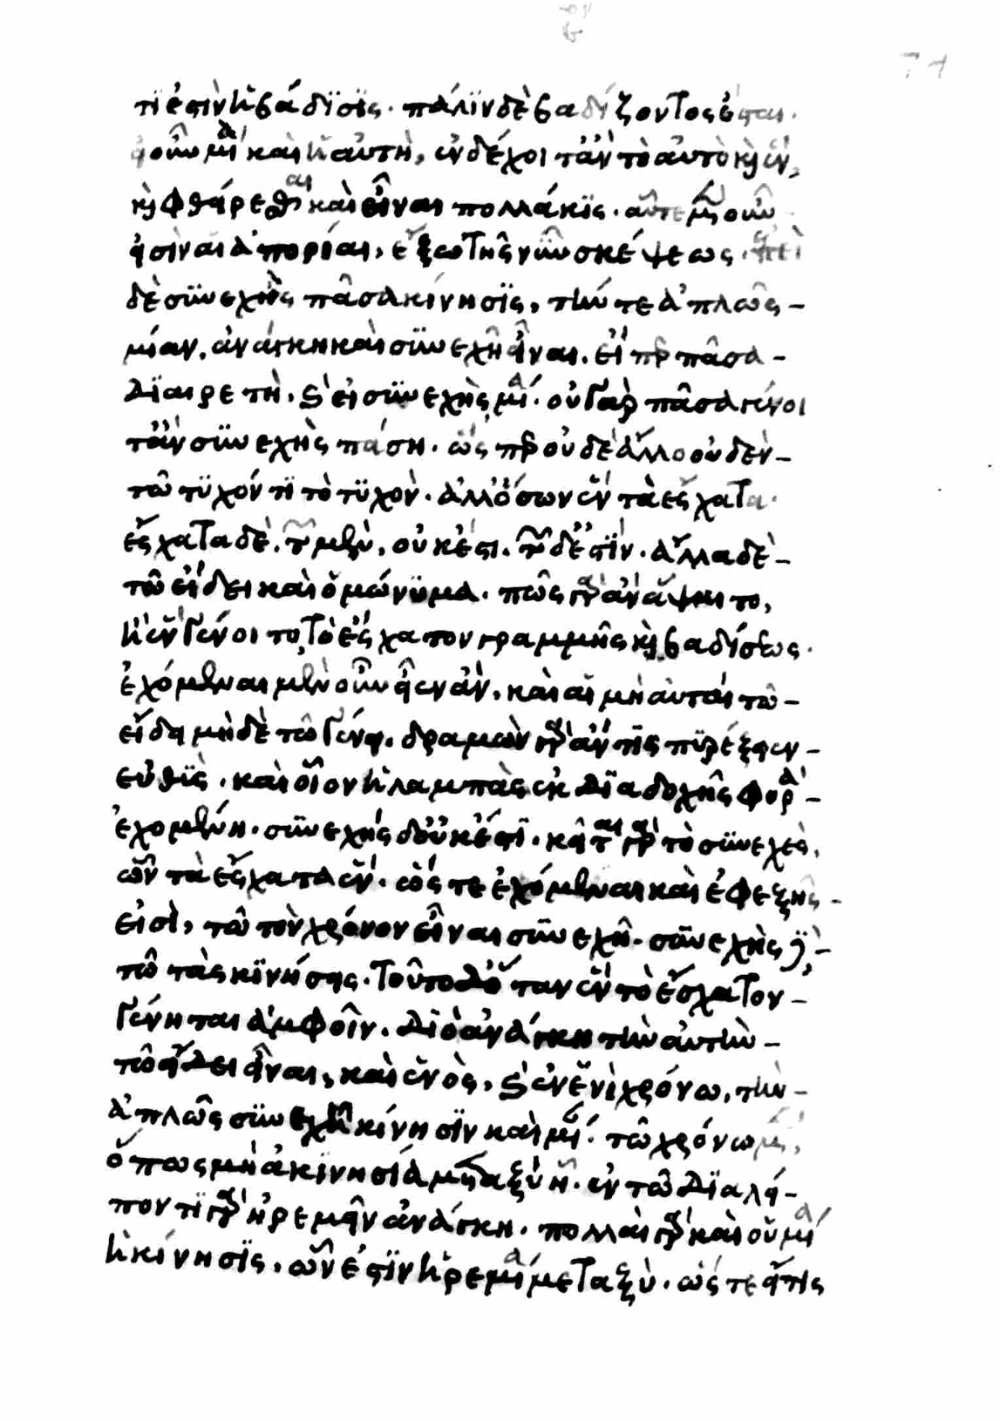 τί ἐστιν ἡ βάδισις. πάλιν δὲ βαδίζοντος ἔσται.
οὖν μία καὶ ἡ αὐτὴ, ἐνδέχοιτ' ἂν τὸ αὐτὸ καὶ ἓν,
καὶ φθείρεσθαι καὶ εἶναι πολλάκις. αὗται μὲν οὖν
εἰσὶν αἱ ἀπορίαι, ἔξω τῆς νῦν σκέψεως. ἐπεὶ
δὲ συνεχὴς πᾶσα κίνησις, τήν τε ἁπλῶς
μίαν, ἀνάγκη καὶ συνεχῆ εἶναι. εἴπερ πᾶσα
διαιρετὴ. καὶ εἰ συνεχὴς, μία. οὐ γὰρ πᾶσα γένοι
τ' ἂν συνεχὴς πάσῃ. ὥσπερ οὐδὲ ἄλλο οὐδὲν
τῶ τυχόντι τὸ τυχὸν. ἀλλ' ὅσων ἓν τὰ ἔσχατα.
ἔσχατα δὲ. τῶν μὲν, οὐκ ἔστι. τῶν δὲ ἔστιν. ἄλλα δὲ
τῶ εἴδει καὶ ὁμώνυμα. πῶς γὰρ ἂν ἅψαιτο,
ἢ ἓν γένοιτο, τὸ ἔσχατον γραμμῆς καὶ βαδίσεως.
ἐχόμεναι μὲν οὖν εἶεν ἂν, καὶ αἱ μὴ αὐταὶ τῶ
εἴδει μηδὲ τῶ γένει. δραμὼν γὰρ ἄν τις πυρέξειεν
εὐθὺς. καὶ οἷον ἡ λαμπὰς ἐκ διαδοχῆς φορὰ
ἐχομένη. συνεχὴς δ' οὐκ ἔστι. κεῖται γὰρ τὸ συνεχὲς,
ὧν τὰ ἔσχατα ἕν. ὥστε ἐχόμεναι καὶ ἐφεξῆς
εἰσὶ, τῶ τὸν χρόνον εἶναι συνεχῆ. συνεχὴς δὲ
τῶ τὰς κινήσεις. τοῦτο δ' ὅταν ἓν τὸ ἔσχατον
γένηται ἀμφοῖν. διὸ ἀνάγκη τὴν αὐτὴν
τῶ εἴδει εἶναι, καὶ ἑνὸς, καὶ ἐν ἑνὶ χρόνω, τὴν
ἁπλῶς συνεχῆ κίνησιν καὶ μίαν. τῶ χρόνω μὲν,
ὅπως μὴ ἀκινησία μεταξὺ ᾖ. ἐν τῶ διαλεί-
ποντι γὰρ ἠρεμεῖν ἀνάγκη. πολλαὶ γὰρ καὶ οὐ μία
ἡ κίνησις, ὧν ἐστιν ἠρεμία μεταξὺ. ὥστε εἴ τις